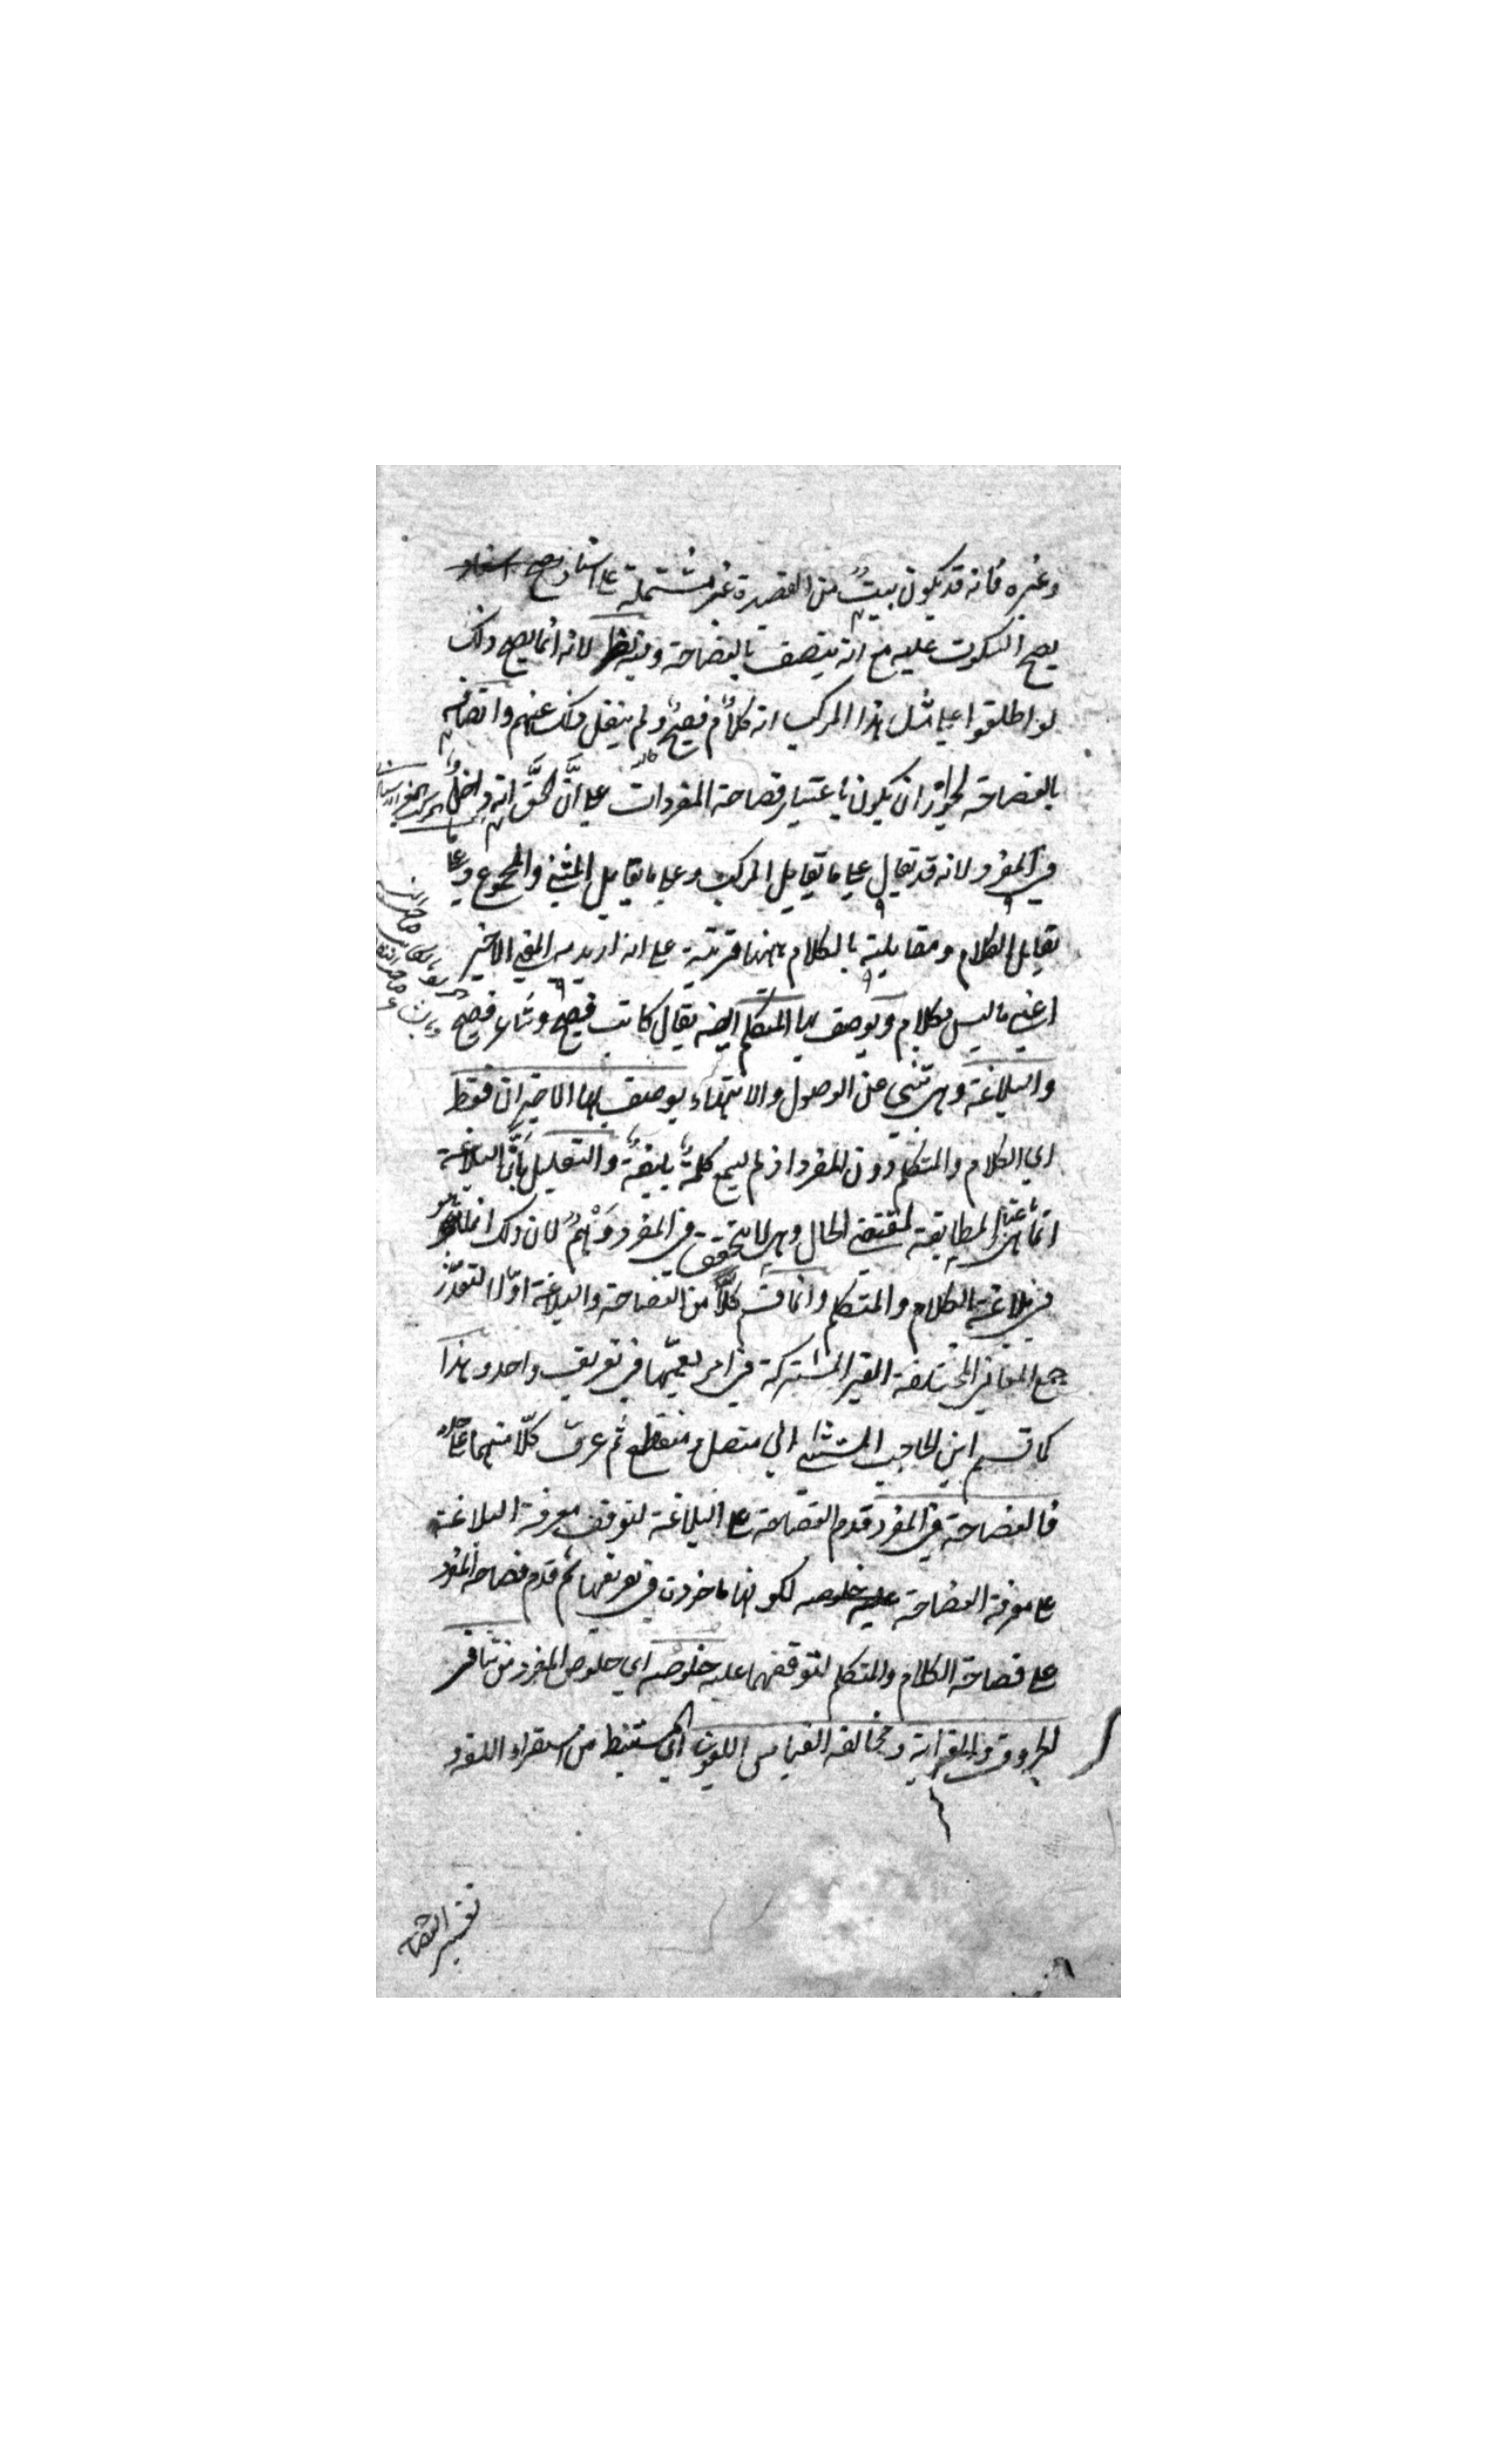 وغيره فانه قد يكون بيت من القصيدة غير مشتملة على اسناد يصح اسناد
يصح السكوت عليه مع انه يتصف بالفصاحة وفيه نظر لانه انما يصح ذلك
لو اطلقوا على مثل هذا المركب انه كلام فصيح ولم ينقل ذلك عنهم واتصافه
بالفصاحة لجواز ان يكون باعتبار فصاحة المفردات على ان الحق انه داخل
في المفرد لانه قد يقال على ما يقابل المركب وعلى ما يقابل المثنى والمجموع وعلى ما
يقابل الكلام ومقابلته بالكلام ههنا قرينة على انه اريد به المعنى الاخير
اعني ما ليس بكلام ويوصف بها المتكلم ايضا يقال كاتب فصيح وشاعر فصيح
والبلاغة وهي تنبئ عن الوصول والانتهاء يوصف بها الاخيران فقط
اي الكلام والمتكلم دون المفرد اذ لم يسمع كلمة بليغة والتعليل بان البلاغة
انما هي باعتبار المطابقة لمقتضى الحال وهي لا تتحقق في المفرد وهم لان ذلك انما هو
في بلاغة الكلام والمتكلم وانما قسم كلا من الفصاحة والبلاغة اولا لتعذر
جمع المعاني المختلفة الغير المشتركة في امر يعمها في تعريف واحد وهذا
كما قسم ابن الحاجب المستثنى الى متصل ومنقطع ثم عرف كلا منهما على حدة
فالفصاحة في المفرد قدم الفصاحة على البلاغة لتوقف معرفة البلاغة
على معرفة الفصاحة عليه خلوصه لكونها ماخوذة في تعريفها ثم قدم فصاحة المفرد
على فصاحة الكلام والمتكلم لتوقفهما عليه خلوصه اي خلوص المفرد من تنافر
الحروف والغرابة ومخالفة القياس اللغوي اي المستنبط من استقراء اللغة و